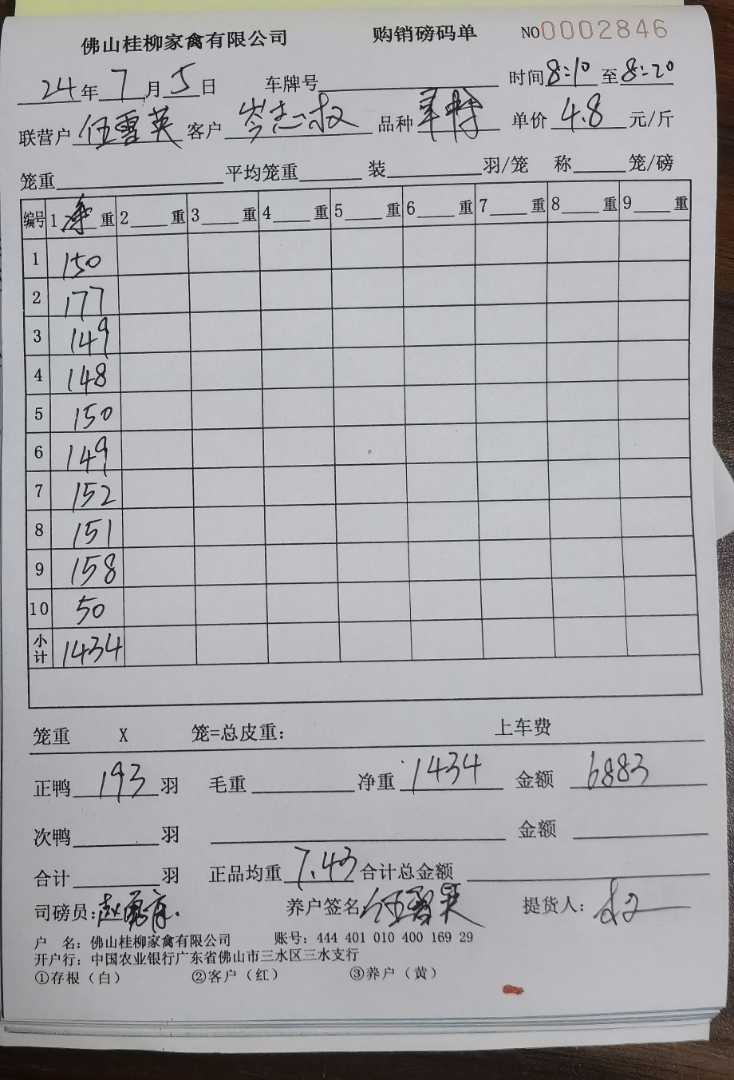 佛山桂柳家禽有限公司 购销磅码单 NO0002846
24年7月5日 车牌号 时间8:10至8:20
联营户伍雪英 客户岑志权 品种 单价4.8元/斤
笼重 平均笼重 装 羽/笼 称 笼/磅
编号 1净重 2 重 3 重 4 重 5 重 6 重 7 重 8 重 9 重
1 150
2 177
3 149
4 148
5 150
6 149
7 152
8 151
9 158
10 50
小计 1434
笼重 X 笼=总皮重: 上车费
正鸭193羽 毛重 净重1434 金额6883
次鸭 羽 金额
合计 羽 正品均重7.43 合计总金额
司磅员: 养户签名伍雪英 提货人:
户 名: 佛山桂柳家禽有限公司 账号: 444 401 010 400 169 29
开户行: 中国农业银行广东省佛山市三水区三水支行
①存根(白) ②客户(红) ③养户(黄)